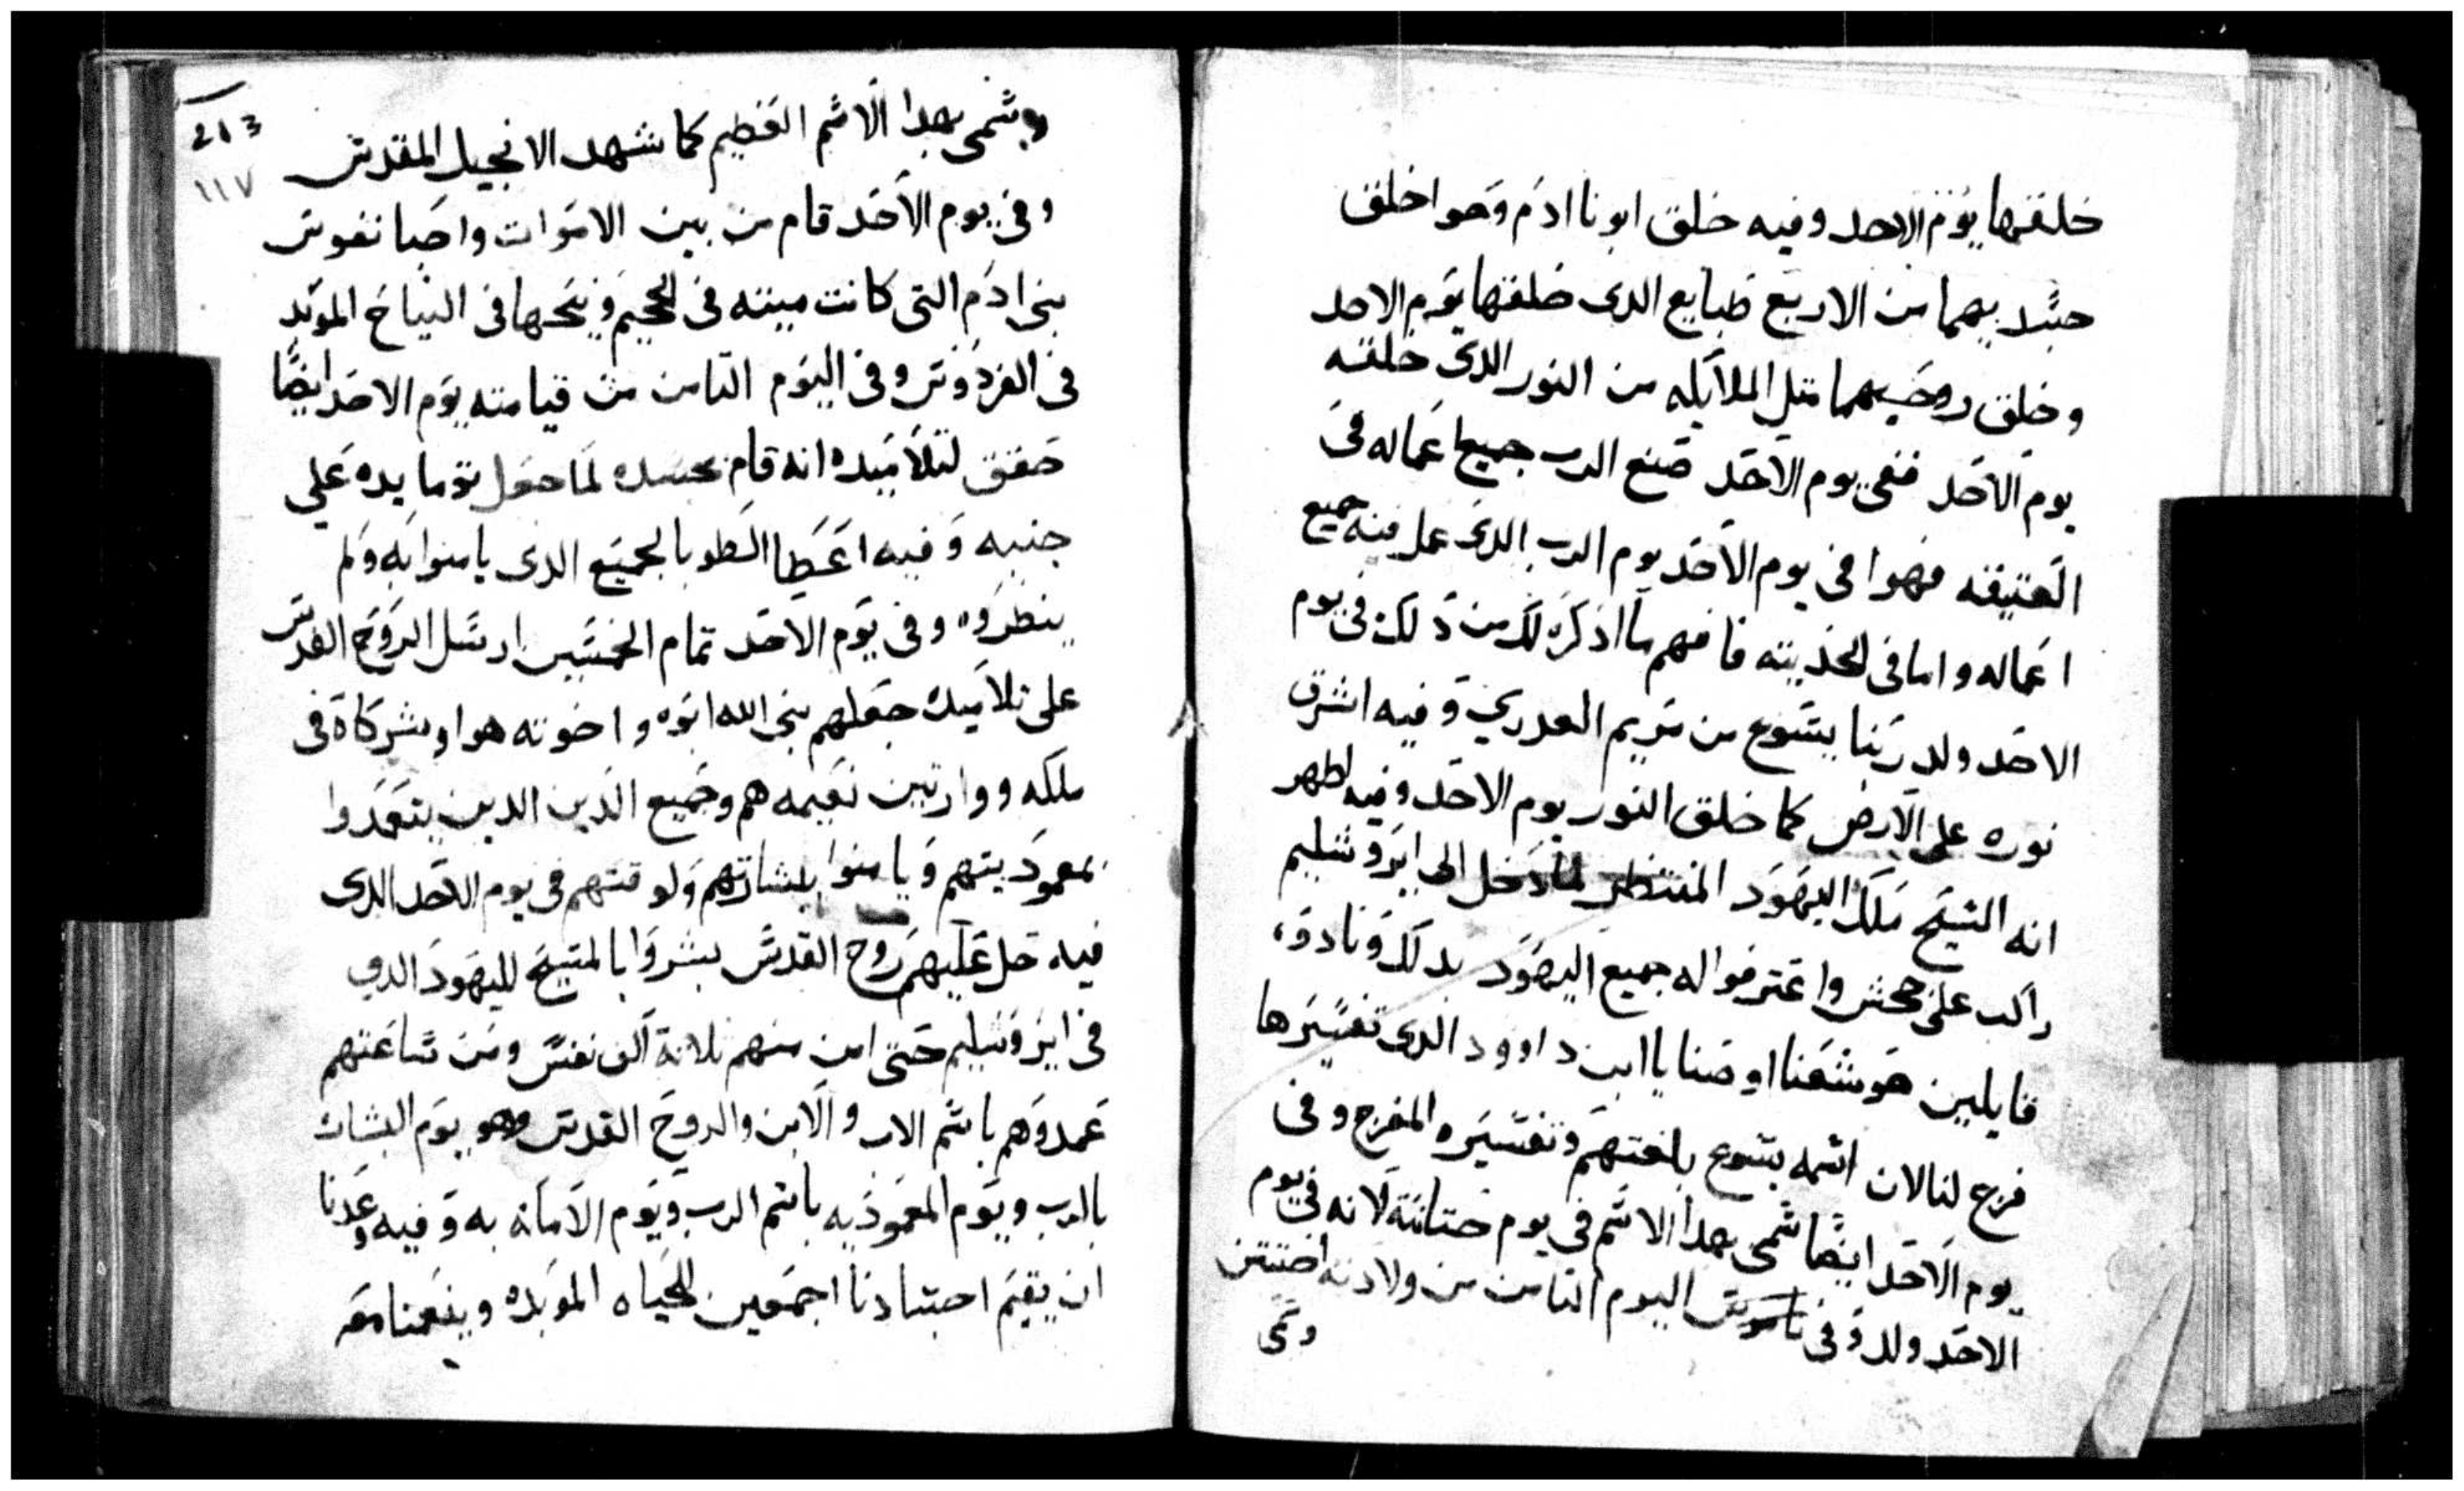 خلقها يوم الاحد وفيه خلق ابونا ادم وحوا خلق
جسديهما من الاربع طبايع الدى خلقها يوم الاحد
وخلق روحيهما متل الملايكه من النور الدى خلقه
يوم الاحد ففى يوم الاحد صنع الرب جميع اعماله فى
العتيقه فهوا فى يوم الاحد يوم الرب الدى عمل فيه جميع
اعماله واما فى الحديته فافهم ما ادكره لك من دلك فى يوم
الاحد ولد ربنا يسوع من مريم العدرى وفيه اشرق
نوره على الارض كما خلق النور يوم الاحد وفيه اظهر
انه المسيح ملك اليهود المنتظر لما دخل الى ايروشليم
راكب على جحش واعترفوا له جميع اليهود بدلك ونادو
قايلين هوشعنا اوصنا يا ابن داوود الدى تفسيرها
فرج لنا لان اسمه يسوع بلغتهم وتفسيره المفرج وفى
يوم الاحد ايضا سمى بهدا الاسم فى يوم ختانته لانه فى يوم
الاحد ولد وفى اليوم التامن من ولادته اختتن
وسمى
213
١١٧
وسمى بهدا الاسم العظيم كما شهد الانجيل المقدس
وفى يوم الاحد قام من بين الاموات واحيا نفوس
بنى ادم التى كانت ميته فى الجحيم ونيحها فى النياح الموبد
فى الفردوس وفى اليوم التامن من قيامته يوم الاحد ايضًا
حقق لتلاميده انه قام بجسده لما جعل توما يده على
جنبه وفيه اعطا الطوبا لجميع الدى يامنوا به ولم
ينظروه وفى يوم الاحد تمام الخمسين ارسل الروح القدس
على تلاميده جعلهم بنى الله ابوه واخوته هوا وشركاة فى
ملكه ووارتين نعيمه هم وجميع الدين الدين يتعمدوا
بمعموديتهم ويامنوا ببشارتهم ولوقتهم فى يوم الاحد الدى
فيه حل عليهم روح القدس بشروا بالمسيح لليهود الدى
فى ايروشليم حتى امن منهم تلاتة الف نفس ومن ساعتهم
عمدوهم باسم الاب والابن والروح القدس وهو يوم البشاره
بالرب ويوم المعموديه باسم الرب ويوم الامانه به وفيه وعدنا
ان يقيم اجسادنا اجمعين للحياه الموبده وينعمنا معه